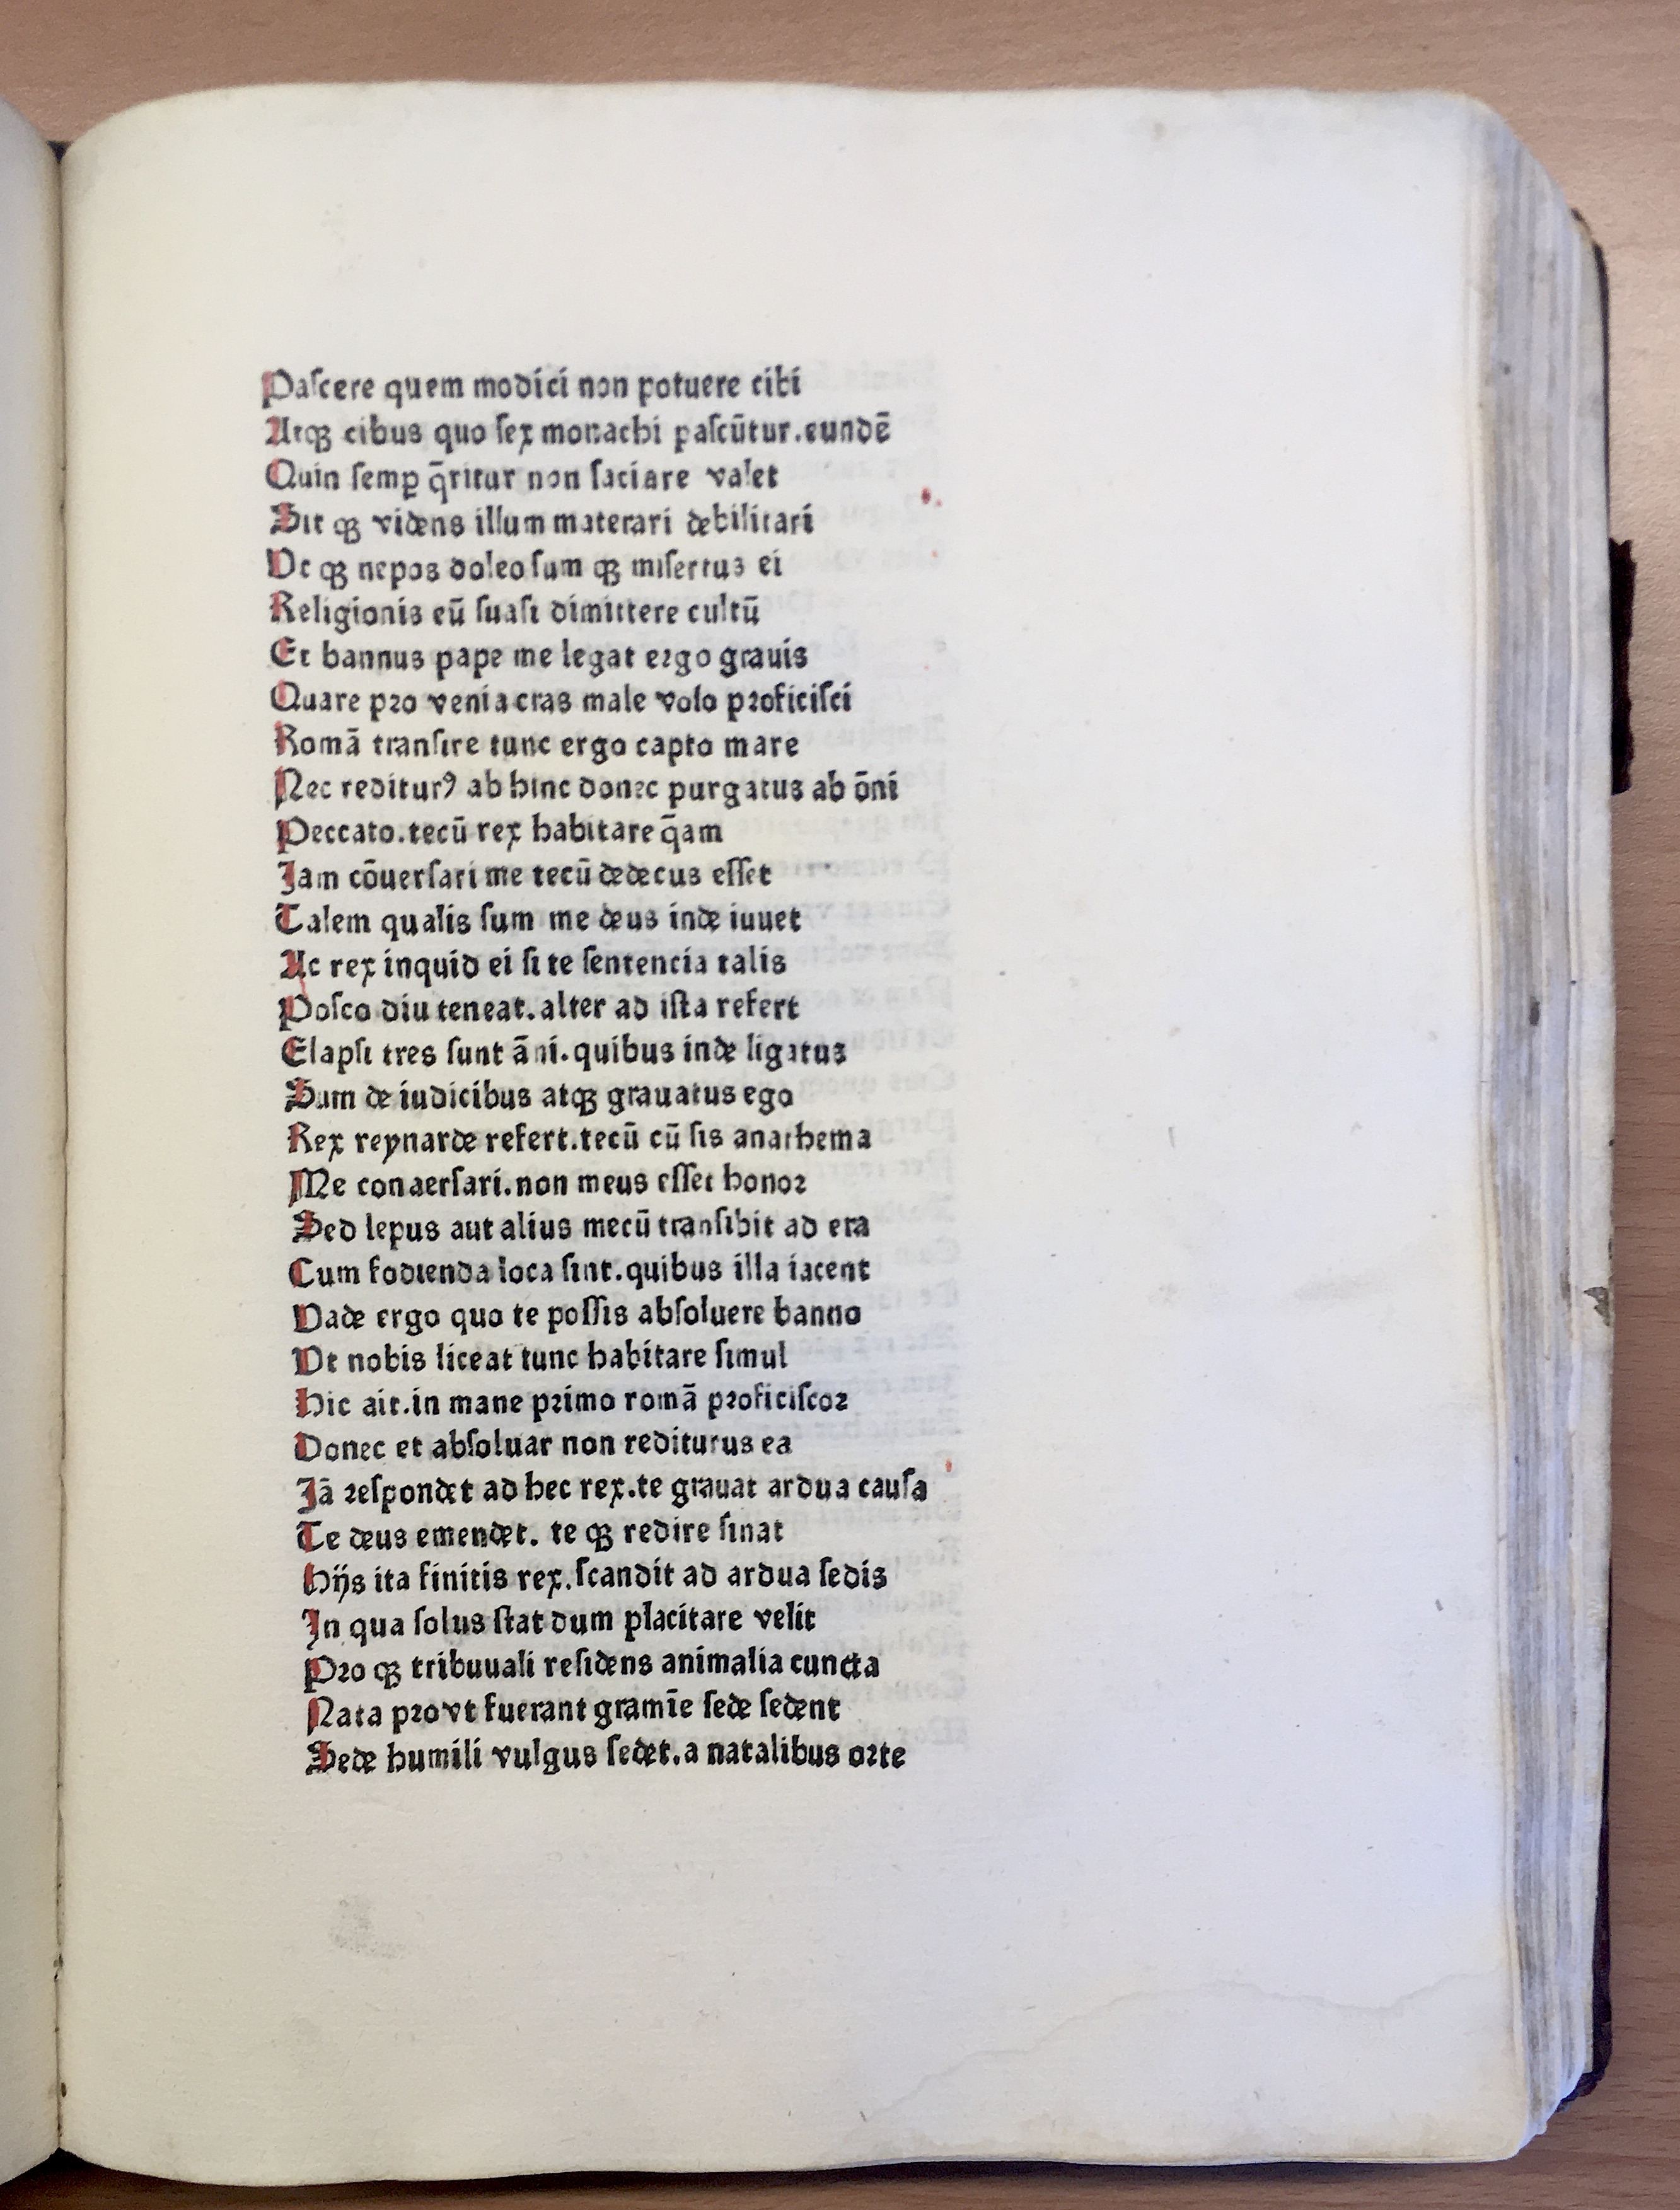 Paſcere quem modici non potuere cibi
Atqꝫ cibus quo ſex monachi paſcūtur.eundē
Quin ſemꝑ q̄ritur non ſaciare valet
Sit qꝫ videns illum materari debilitari
Vt qꝫ nepos doleo ſum qꝫ miſertus ei
Religionis eū ſuaſi dimittere cultū
Et bannus pape me legat ergo grauis
Quare pꝛo venia cras male volo pꝛoficiſci
Romā tranſire tunc ergo capto mare
Nec rediturꝰ ab hinc donec purgatus ab ōni
Peccato.tecū rex habitare q̄am
Jam cōuerſari me tecū dedecus eſſet
Talem qualis ſum me deus inde iuuet
Ac rex inquid ei ſi te ſentencia talis
Poſco diu teneat.alter ad iſta refert
Elapſi tres ſunt āni.quibus inde ligatus
Sum de iudicibus atqꝫ grauatus ego
Rex reynarde refert.tecū cū ſis anathema
Me conaerſari.non meus eſſet honoꝛ
Sed lepus aut alius mecū tranſibit ad era
Cum fodienda loca ſint.quibus illa iacent
Vade ergo quo te poſſis abſoluere banno
Vt nobis liceat tunc habitare ſimul
Hic ait.in mane pꝛimo romā pꝛoficiſcoꝛ
Donec et abſoluar non rediturus ea
Jā ꝛeſpondet ad hec rex.te grauat ardua cauſa
Te deus emendet. te qꝫ redire ſinat
Hijs ita finitis rex.ſcandit ad ardua ſedis
In qua ſolus ſtat dum placitare velit
Pꝛo qꝫ tribuuali reſidens animalia cuncta
Nata pꝛo vt fuerant gramīe ſede ſedent
Sede humili vulgus ſedet.a natalibus oꝛte